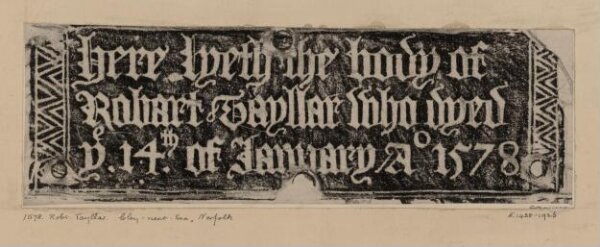 here lyeth the body of
Robart Tayllar who dyed
y. 14.th of January Ao 1578
1578. Robt. Tayllar. Cley-next-Sea, Norfolk
E.1428-1925